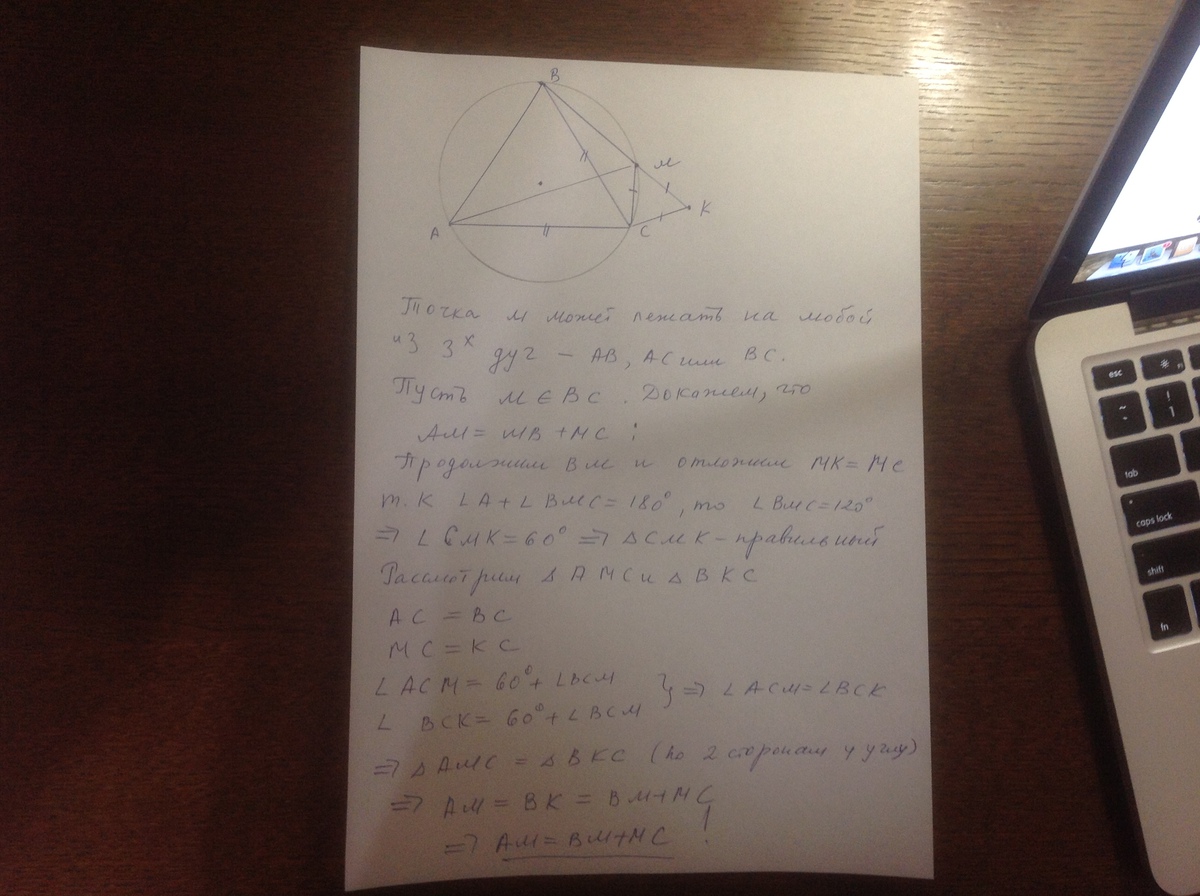 B
M
K
A
C
Точка M может лежать на любой
из 3х дуг – AB, AC или BC.
Пусть M ∈ BC. Докажем, что
AM = MB + MC ;
Продолжим BM и отложим MK = MC
т.к ∠A + ∠BMC = 180°, то ∠BMC = 120°
⇒ ∠CMK = 60° ⇒ △CMK – правильный
Рассмотрим △ AMC и △ BKC
AC = BC
MC = KC
∠ACM = 60° + ∠BCM
} ⇒ ∠ACM = ∠BCK
∠ BCK = 60° + ∠BCM
⇒ △AMC = △BKC (по 2 сторонам и углу)
⇒ AM = BK = BM + MC
⇒ AM = BM + MC !
esc
~
!
1
tab
caps lock
shift
fn